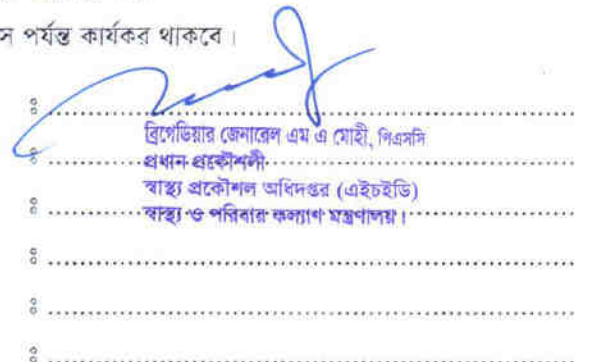 স পর্যন্ত কার্যকর থাকবে।
ঃ ..........................................................
ব্রিগেডিয়ার জেনারেল এম এ মোহী, পিএসসি
ঃ ..........................................................
প্রধান প্রকৌশলী
স্বাস্থ্য প্রকৌশল অধিদপ্তর (এইচইডি)
ঃ ..........................................................
স্বাস্থ্য ও পরিবার কল্যাণ মন্ত্রণালয়।
ঃ ..........................................................
ঃ ..........................................................
ঃ ..........................................................